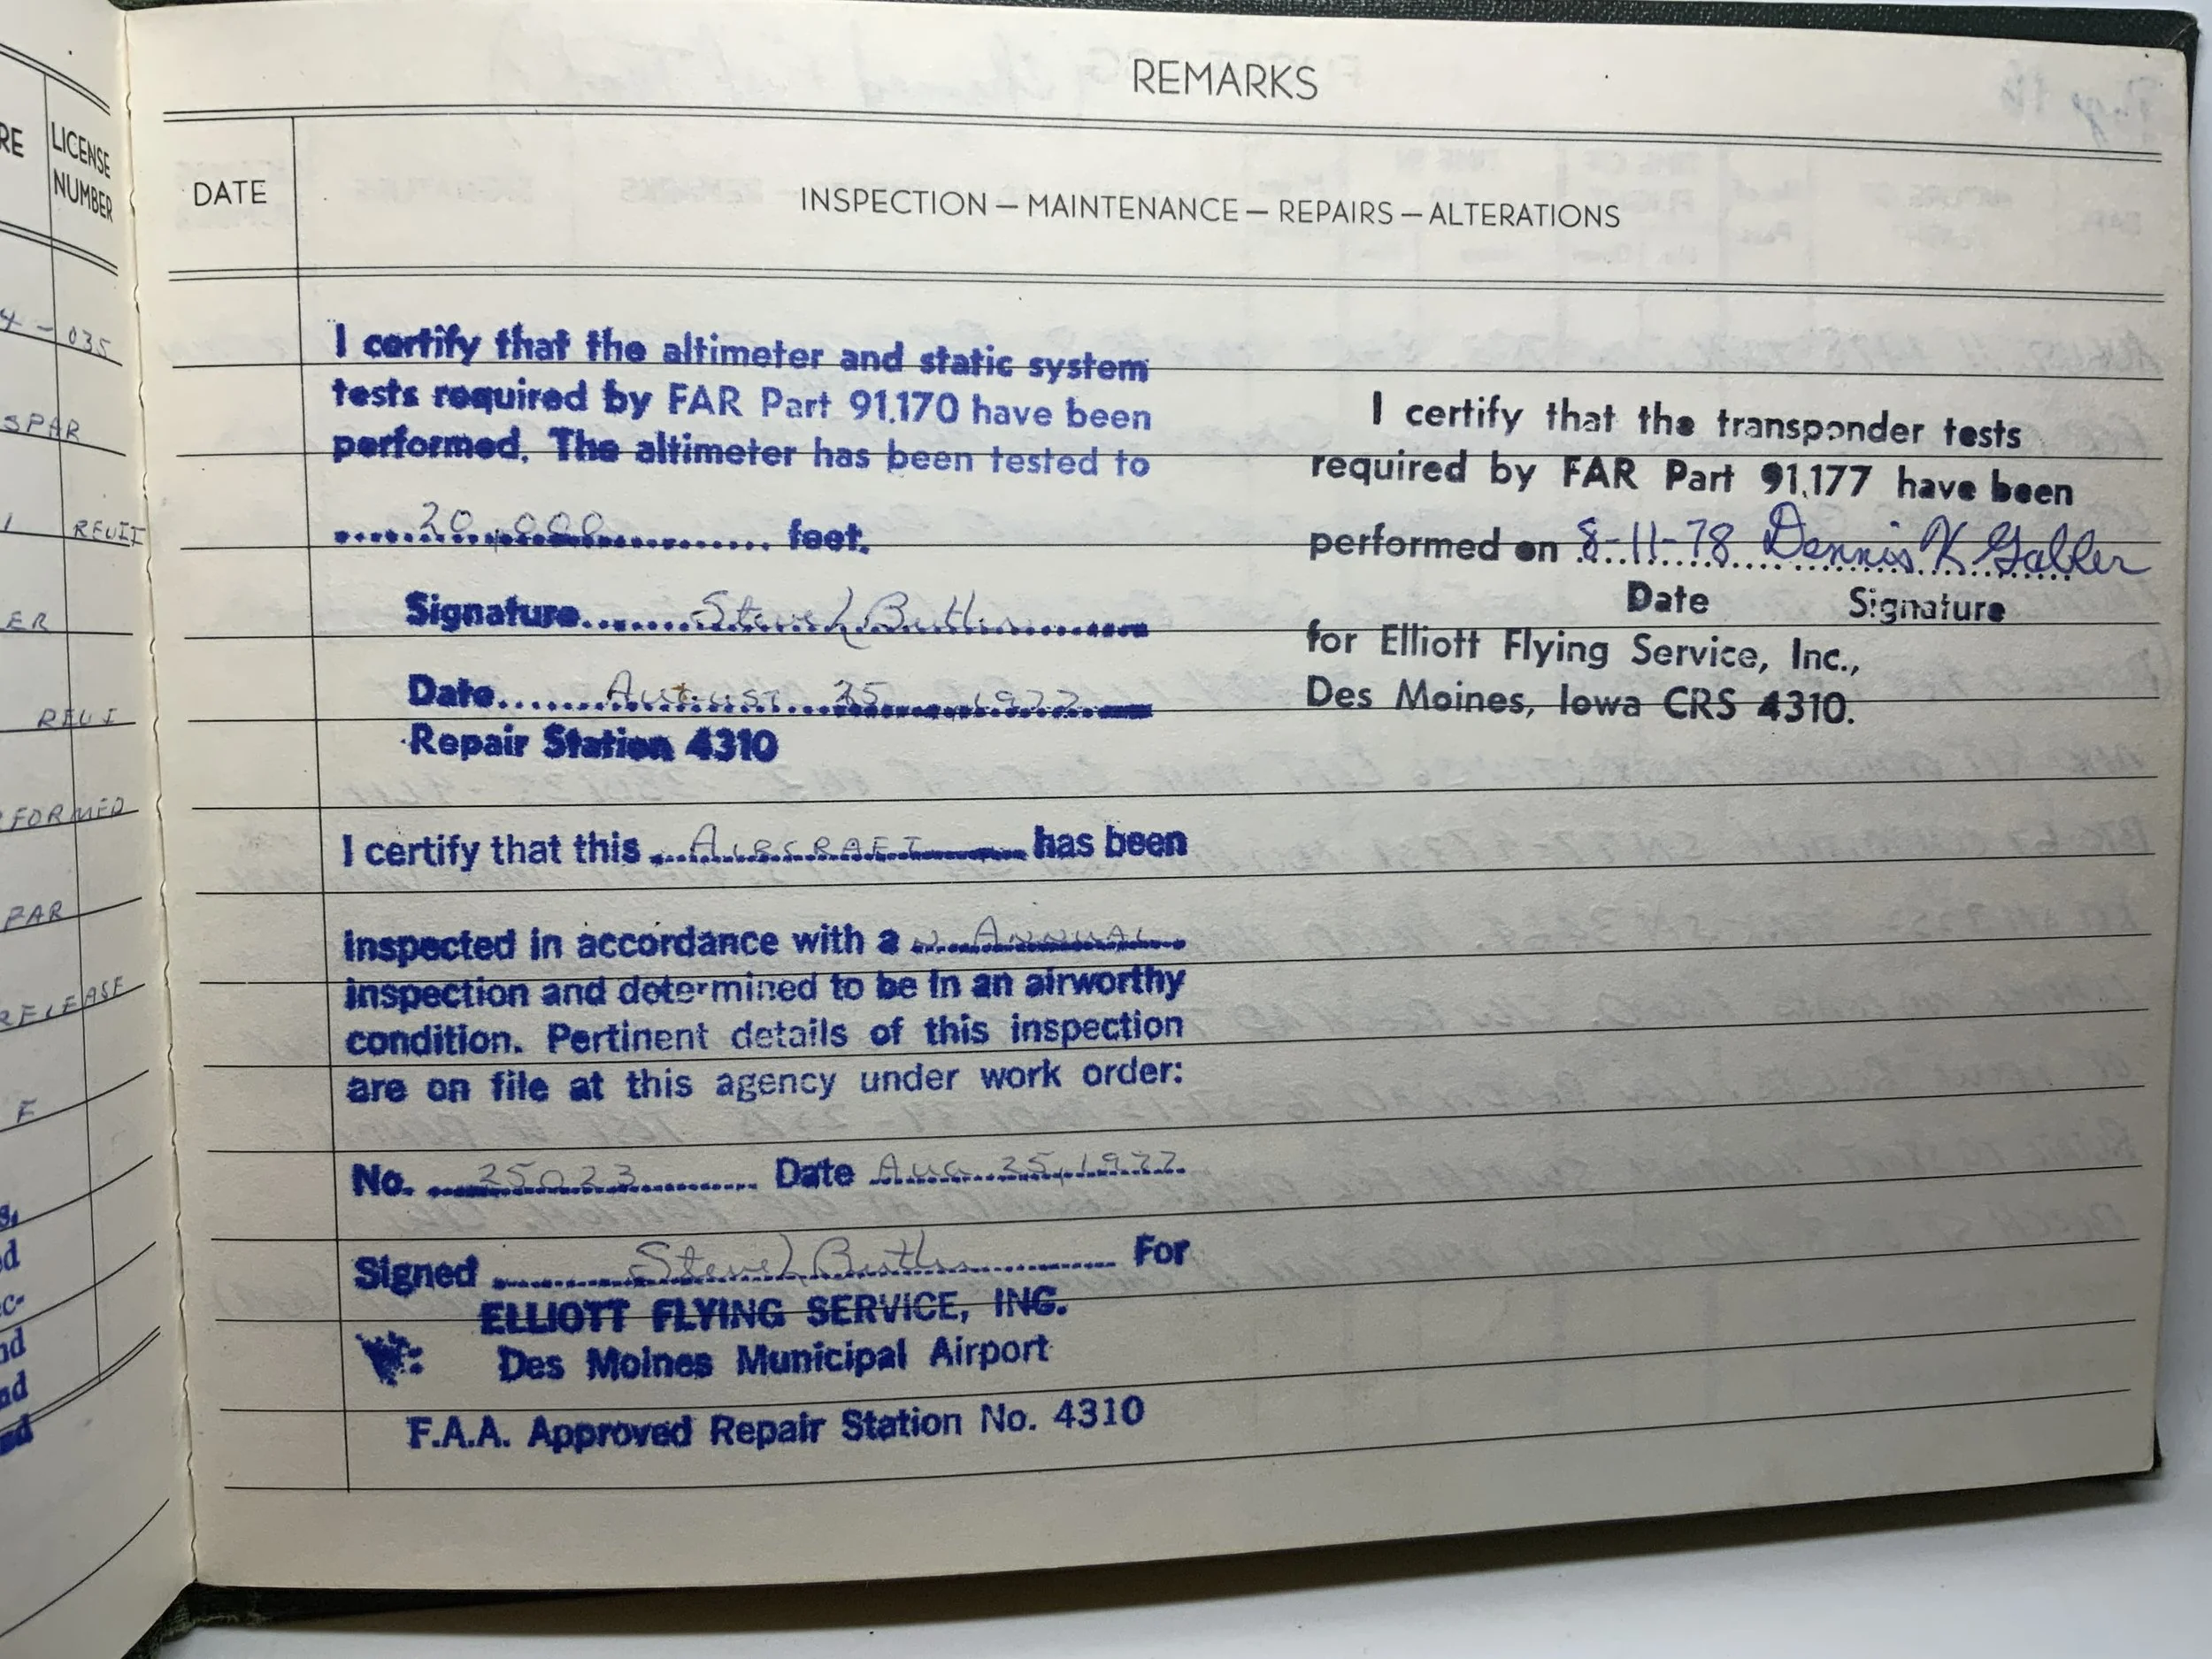 RE
LICENSE
NUMBER
4 - 035
SPAR
ER
FORMED
RELEASE
F
REMARKS
DATE
INSPECTION — MAINTENANCE — REPAIRS — ALTERATIONS
I certify that the altimeter and static system
tests required by FAR Part 91.170 have been
performed. The altimeter has been tested to
20,000 feet.
Signature Steve L Butler
Date August 25 1977
Repair Station 4310
I certify that this AIRCRAFT has been
inspected in accordance with a N ANNUAL
inspection and determined to be in an airworthy
condition. Pertinent details of this inspection
are on file at this agency under work order:
No. 25023 Date Aug 25, 1977
Signed Steve L Butler For
ELLIOTT FLYING SERVICE, INC.
Des Moines Municipal Airport
F.A.A. Approved Repair Station No. 4310
I certify that the transponder tests
required by FAR Part 91.177 have been
performed on 8-11-78 Dennis K Gabler
Date Signature
for Elliott Flying Service, Inc.,
Des Moines, Iowa CRS 4310.